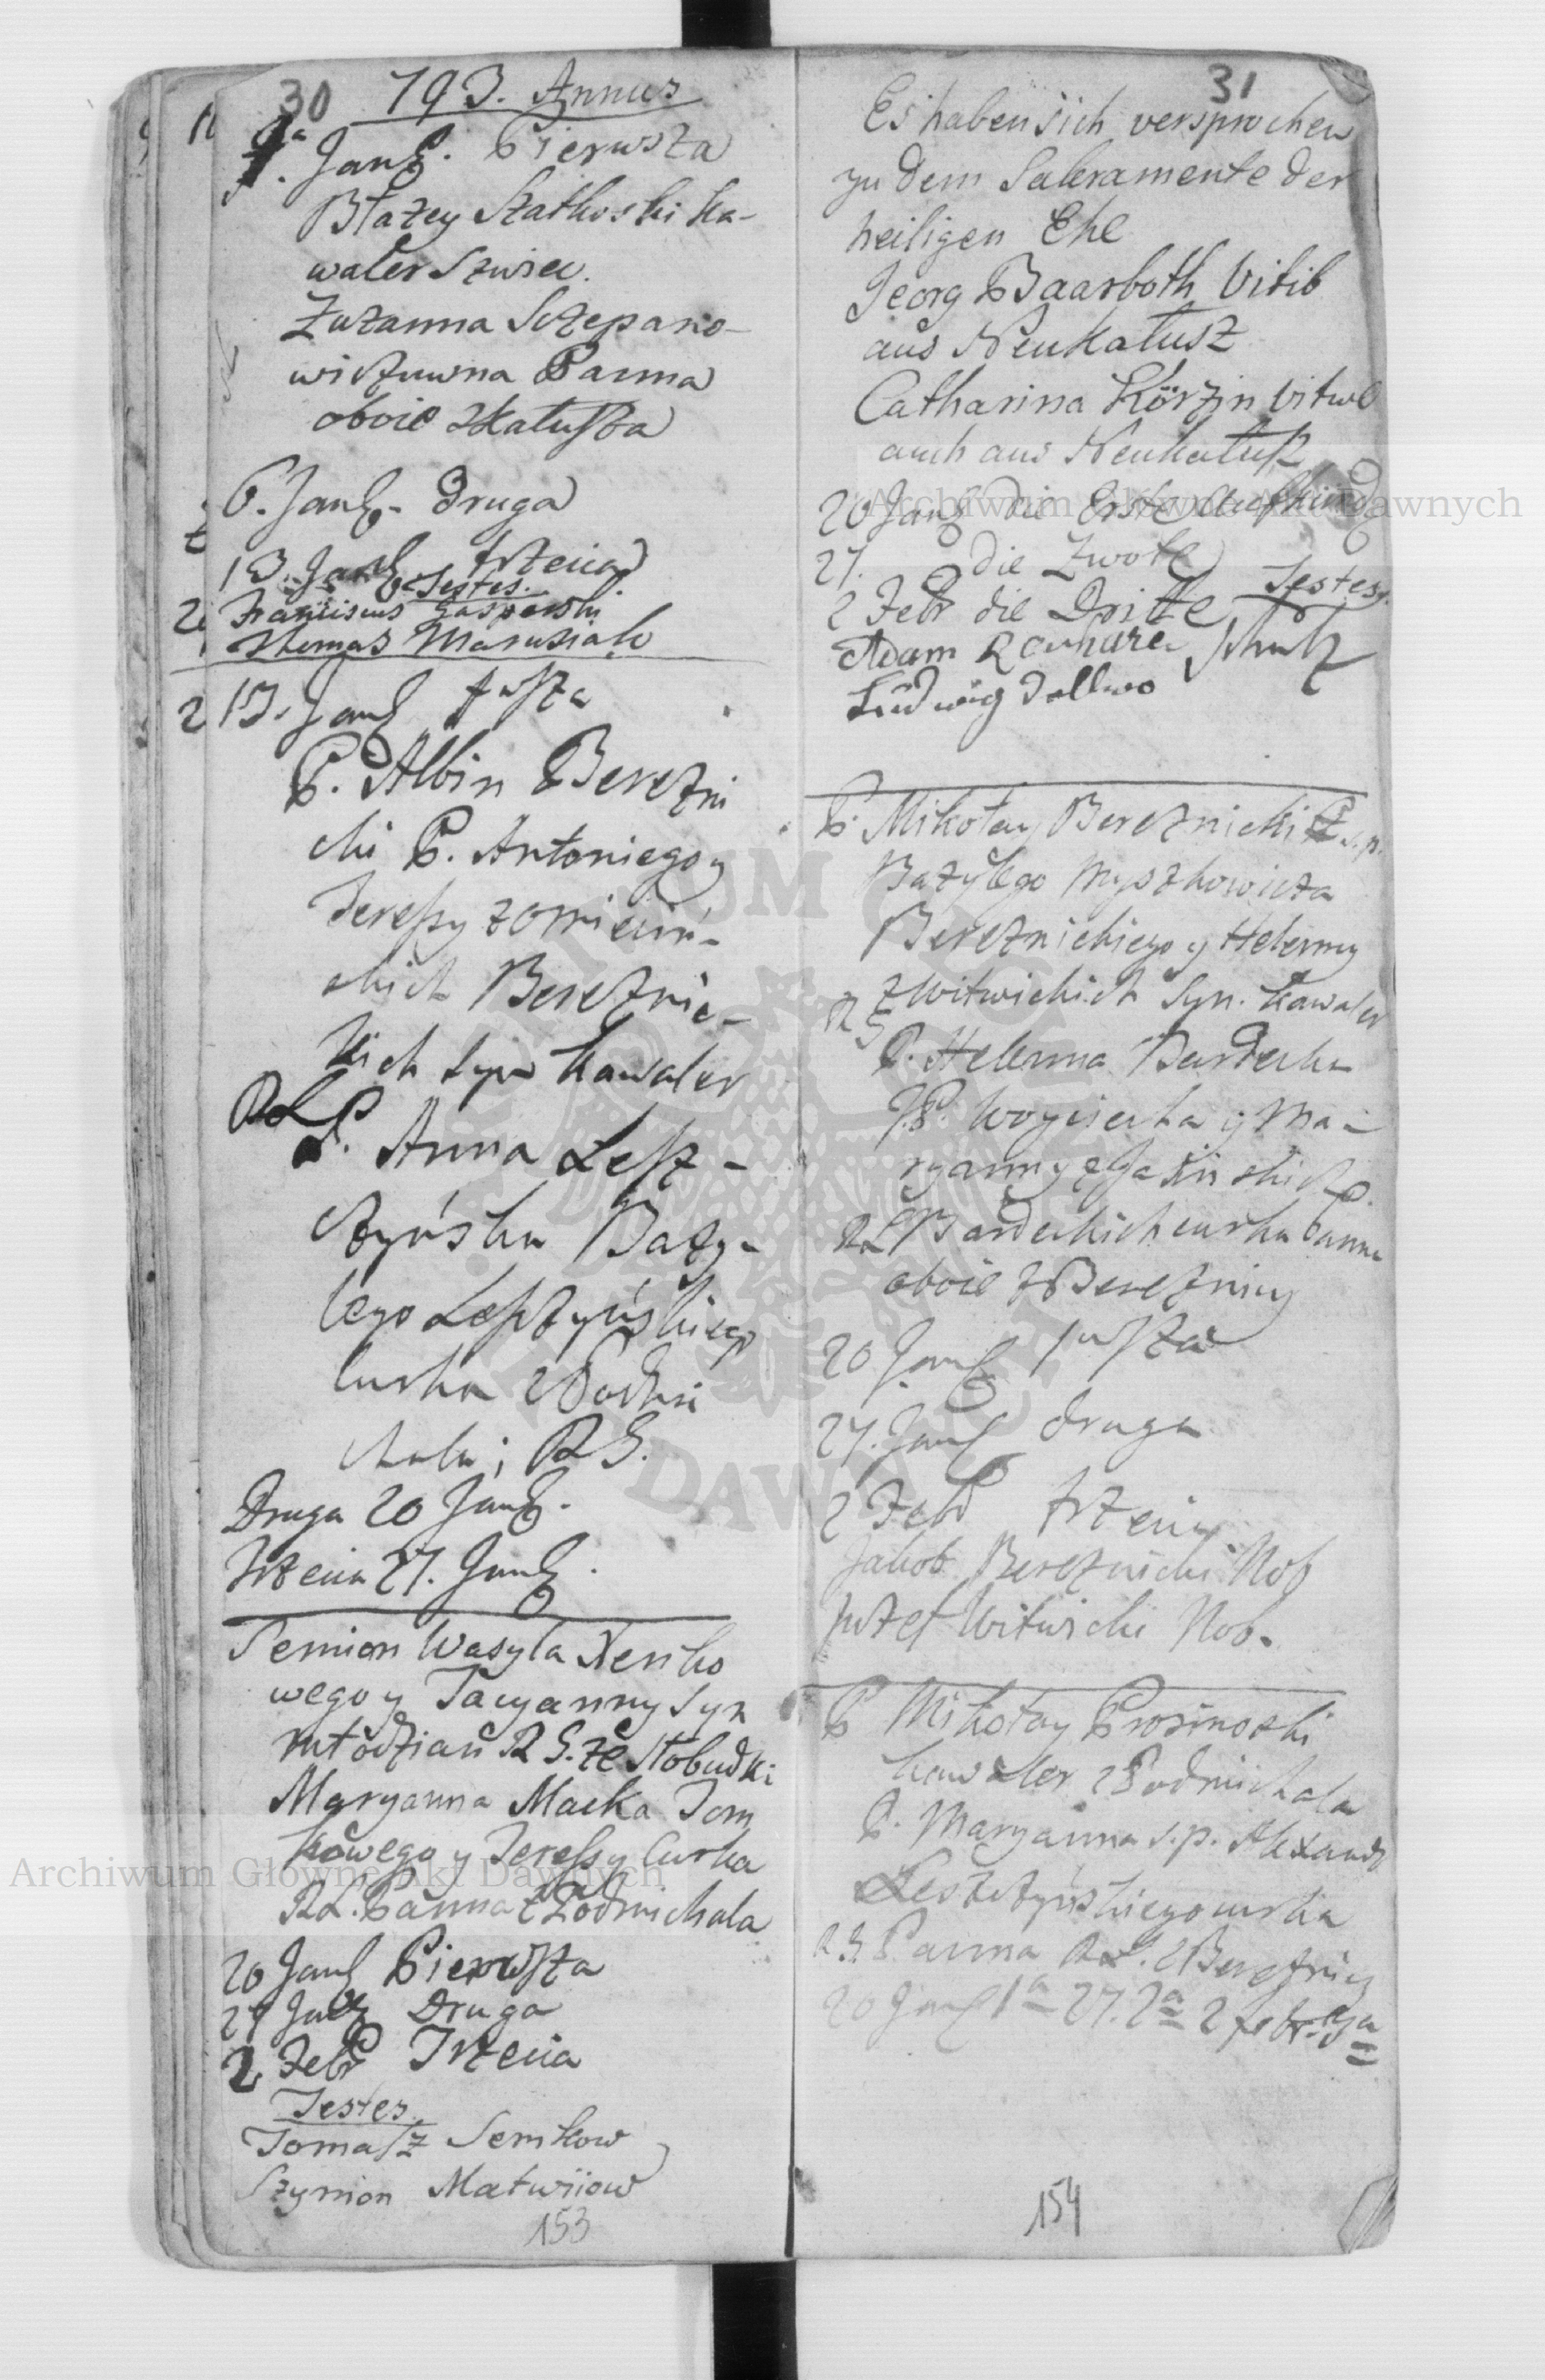 30
793. Annus
1a
Jan. Pierwsza
Błażey Szatkoski Ka-
waler Szwiec.
Zuzanna Sczepano-
wiczuwna Panna
oboie z Kałusza
6. Jan. Druga
13. Jan. trzecia
Testes.
Franciscus Gasperski
Thomas Marusiak
13. Jan. 1wsza
P. Albin Berezni
cki P. Antoniego y
Teressy z
skich Bereznic-
kich syn Kawaler
RL
P. Anna Lesz-
czyńska Bazy-
lego Leszczyńskiego
Curka z Podmi
chala; RG.
Druga 20 Jan.
Trzecia 27. Jan.
Semion Wasyla
wego y Tacyanny syn
młodzian RG. ze Słobudki
Maryanna Maćka Tom
kowego y Teressy Curka
RL. Panna z Podmichala
20 Jan. Pierwsza
27 Jan. Druga
2 Febr Trzecia
Testes
Tomasz Semkow
Szymon Matwiiow
153
31
Es haben sich versprochen
zu dem Sakramente der
heiligen Ehe
Georg Baarboth Vitib
aus Neukałusz
Catharina Körzin Vitwe
auch aus Neukałusz
20 Jan. die Erste Aufkünd
27. die Zwote
2 Febr die Dritte Testes.
Adam Schultz
Ludwig Dallwo
P. Mikołay Bereznicki s.p.
Bazylego Myszkowicza
Bereznickiego y Helenny
z Witwickich Syn. Kawaler
RG
P. Helenna Bardecka
P. Woyciecha y Ma-
ryanny z Jasińskich
RL Bardeckich curka Panna
oboie z Bereznicy
20 Jan. 1wsza
27. Jan. druga
2 Febr trzecia
Jakob Bereznicki Nob
Jozef Witwicki Nob.
P Mikołay
kawaler z Podmichala
P. Maryanna s.p. Alexandr
Leszczyńskiego curka
RG Panna RL. z Bereznicy
20 Jan. 1a 27. 2a 2 febr. 3a
154
Archiwum Główne Akt Dawnych
Archiwum Główne Akt Dawnych